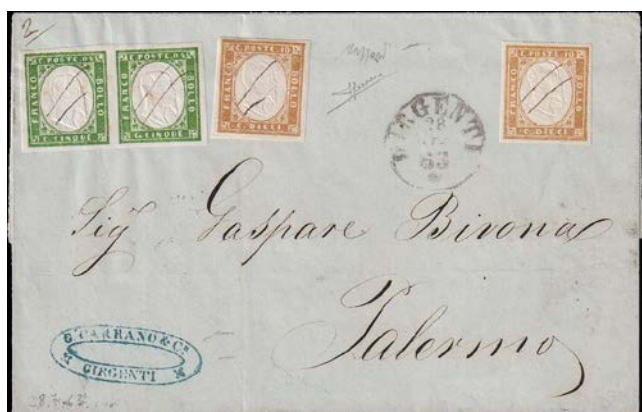 2
C. POSTE 5
FRANCO
BOLLO
C. CINQUE
C. POSTE 5
FRANCO
BOLLO
C. CINQUE
C. POSTE 10
FRANCO
BOLLO
C. DIECI
C. POSTE 10
FRANCO
BOLLO
C. DIECI
GIRGENTI
28
63
Sig Gaspare Bivona
Palermo
G. CARRANO & C.
GIRGENTI